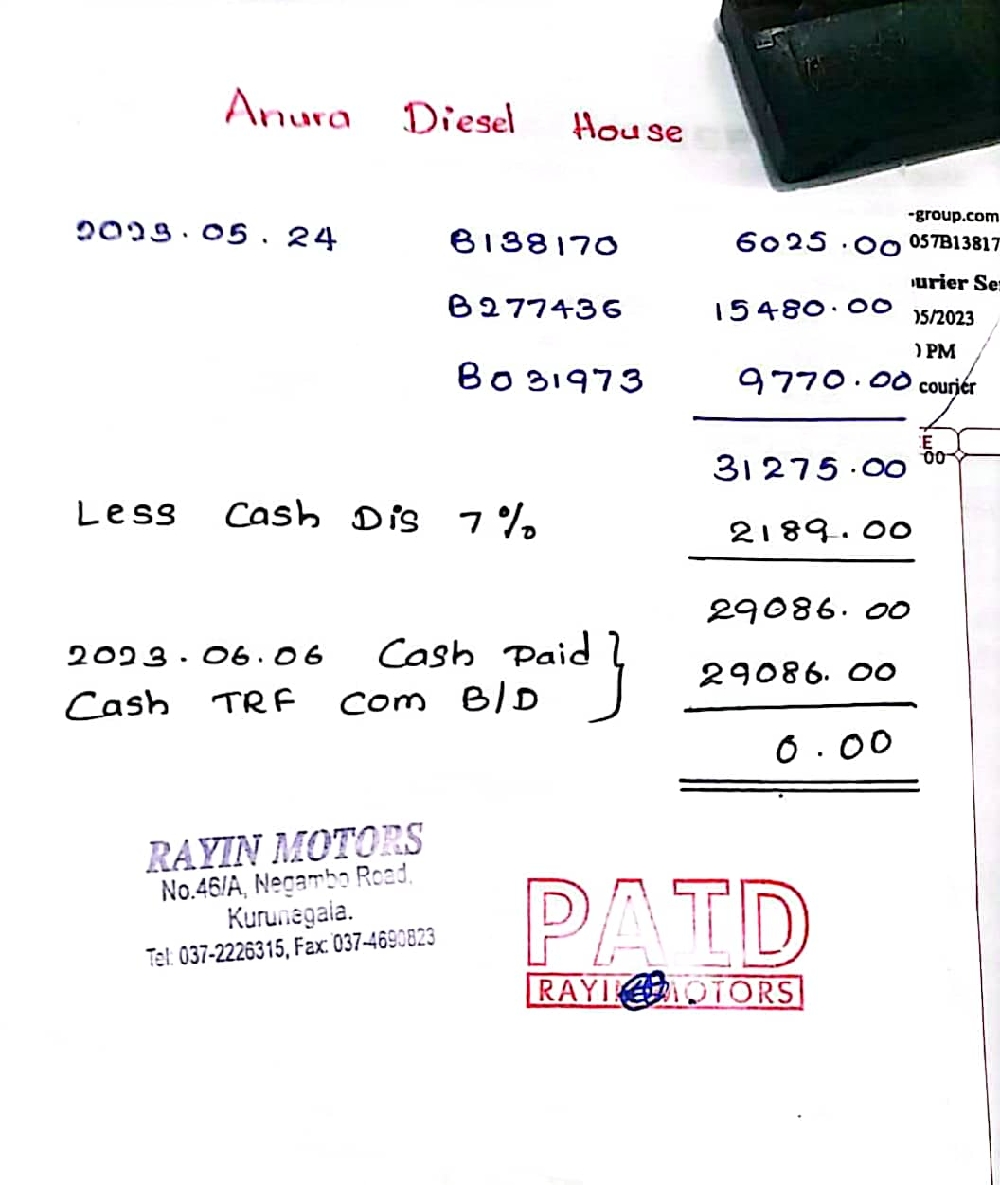 Anura Diesel House
2023.05.24 B138170 6025.00
B277436 15480.00
B031973 9770.00
31275.00
Less Cash Dis 7% 2189.00
29086.00
2023.06.06 Cash Paid } 29086.00
Cash TRF Com B/D
0.00
RAYIN MOTORS
No.46/A, Negambo Road,
Kurunegala.
Tel: 037-2226315, Fax: 037-4690823
PAID
RAYIN MOTORS
-group.com
057B13817
urier Se
05/2023
) PM
courier
E
00